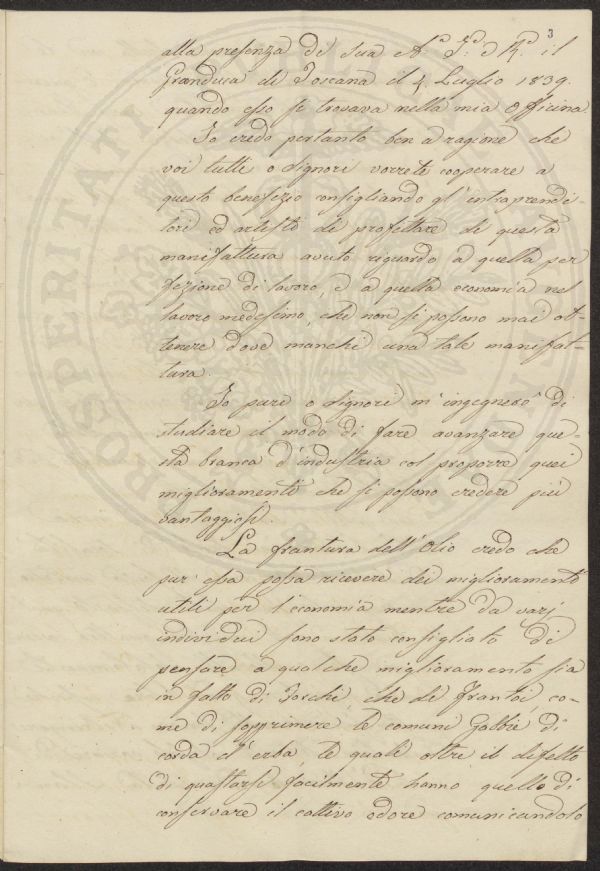 3
alla presenza di Sua A: I: e R: il
Granduca di Toscana il 4. Luglio 1839.
quando esso si trovava nella mia Officina.
Io credo pertanto ben a ragione che
voi tutti o Signori vorrete cooperare a
questo benefizio consigliando gl' intraprendi-
tori ed artisti di profittare di questa
manifattura avuto riguardo a quella per
fezione di lavoro, e a quella economia nel
lavoro medesimo, che non si possono mai ot-
tenere dove manchi una tale manifat-
tura.
Io pure o Signori m' ingegnerò di
studiare il modo di fare avanzare que-
sta branca d' industria col proporre quei
miglioramenti che si possono credere più
vantaggiosi.
La frantura dell' Olio credo che
pur essa possa ricevere dei miglioramenti
utili per l' economia mentre da varj
individui sono stato consigliato di
pensare a qualche miglioramento sia
in fatto di Torchi, che di Frantoi, co-
me di sopprimere le comuni Gabbie di
corda d' erba, le quali oltre il difetto
di guastarsi facilmente hanno quello di
conservare il cattivo odore comunicandolo
PROSPERITATI